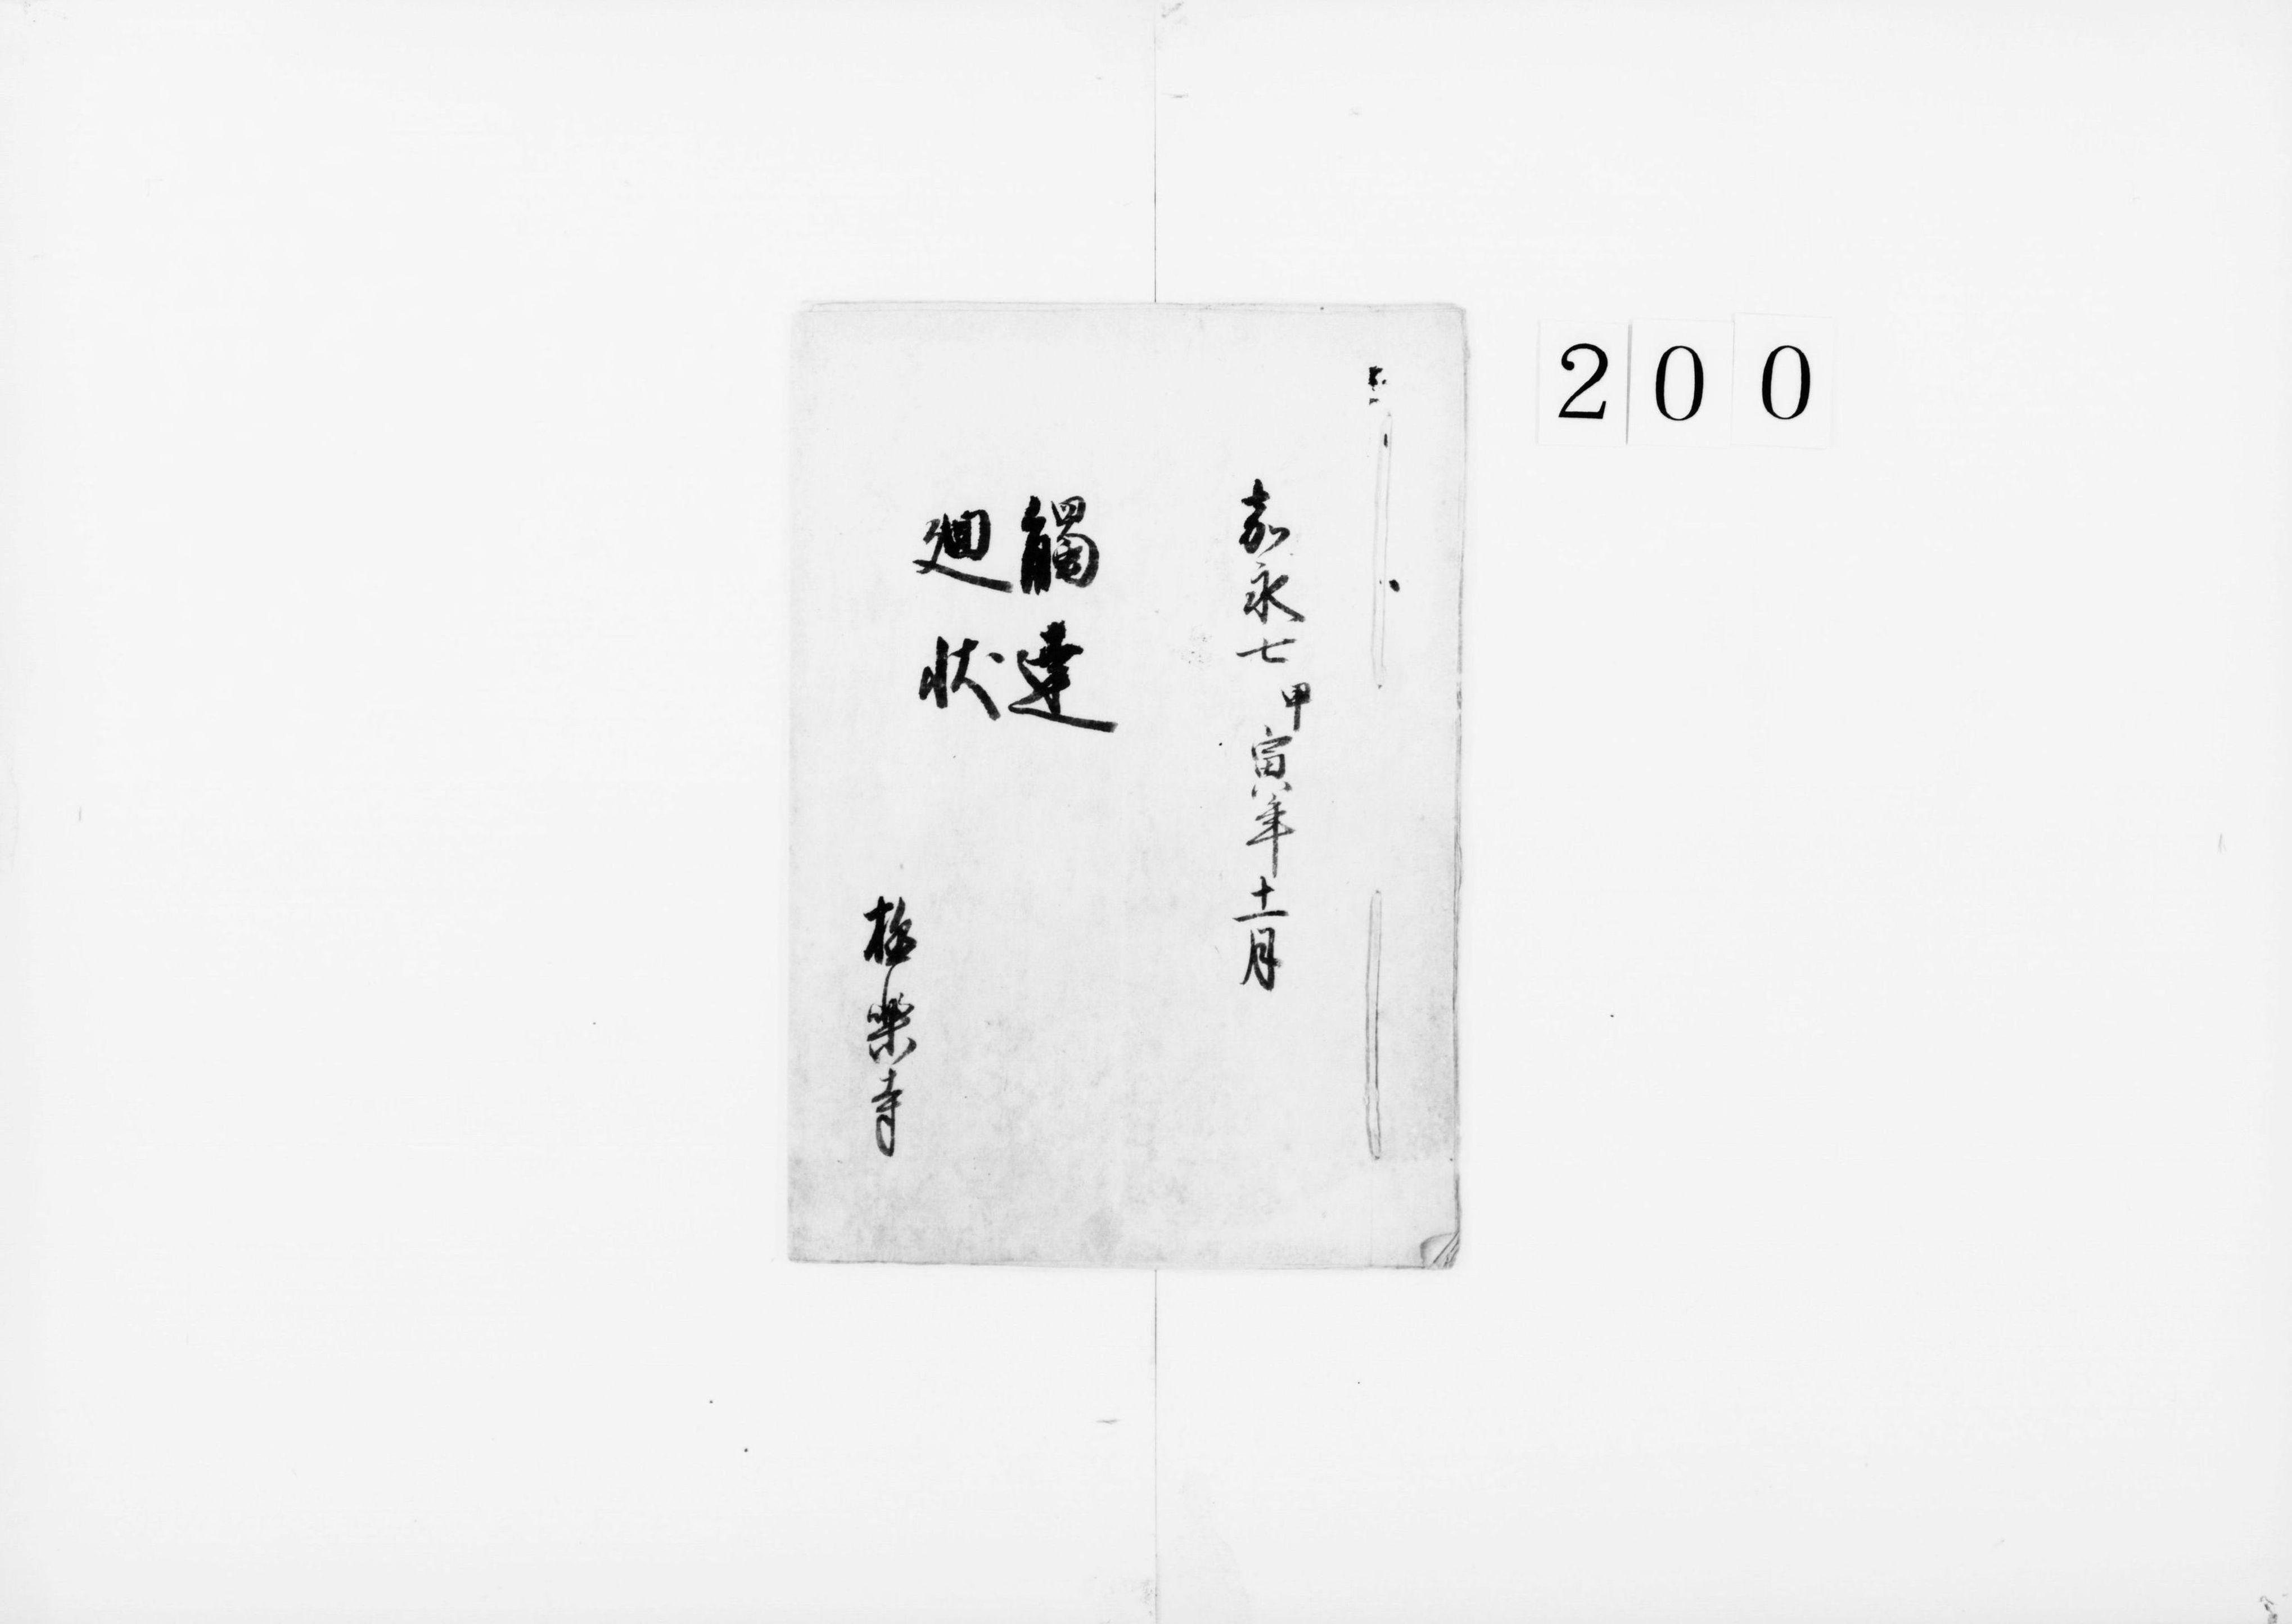 200
嘉永七甲寅年十一月
觸達
廻状
極樂寺